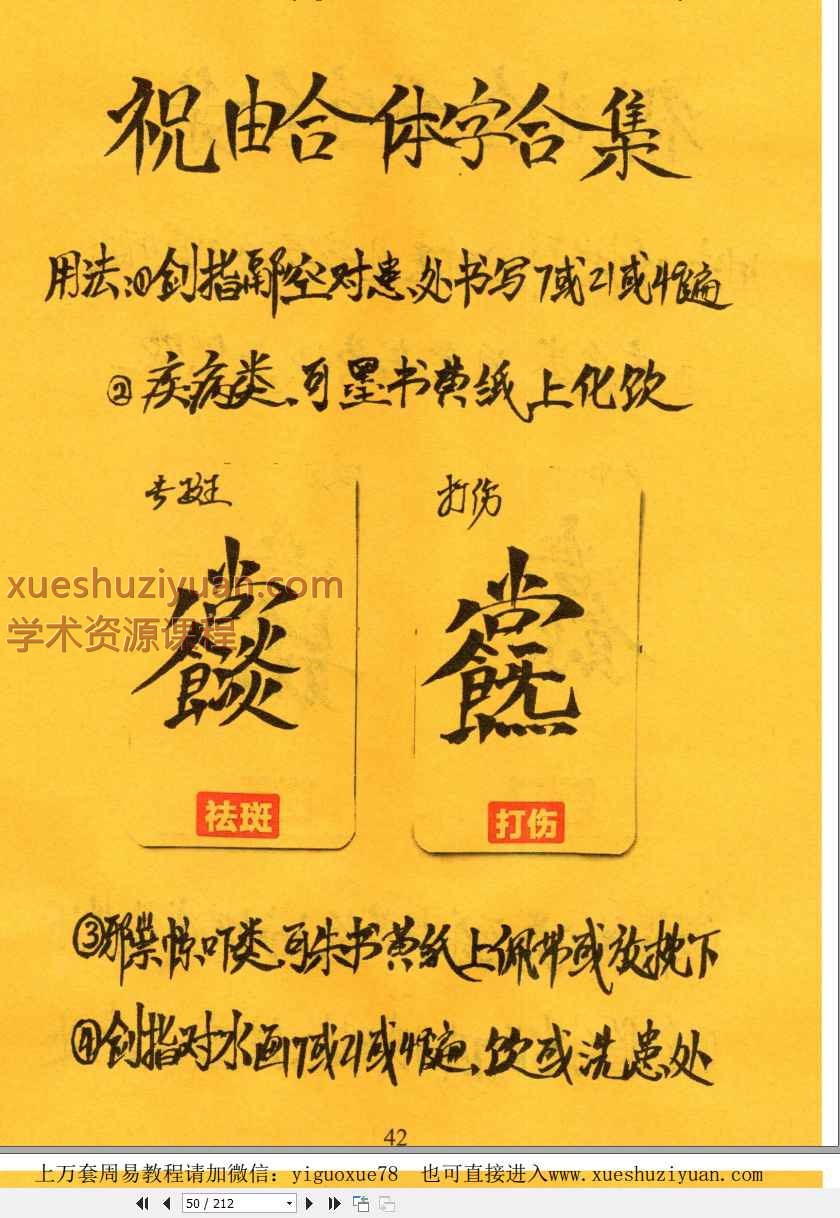 祝由合体字合集
用法:①剑指凌空对患处书写7或21或49遍
②疾病类、可墨书黄纸上化饮
去斑
打伤
xueshuziyuan.com
学术资源课程
祛斑
打伤
③邪祟惊吓类、可朱书黄纸上佩带或放枕下
④剑指对水画7或21或49遍、饮或洗患处
42
上万套周易教程请加微信:yiguoxue78 也可直接进入www.xueshuziyuan.com
50 / 212